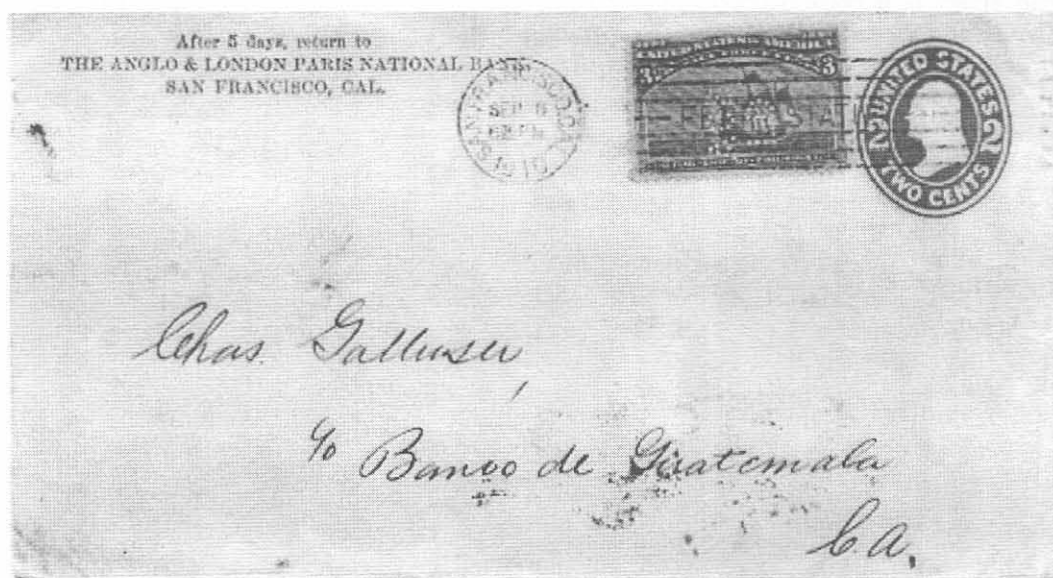 After 5 days, return to
THE ANGLO & LONDON PARIS NATIONAL BANK
SAN FRANCISCO, CAL.
SAN FRANCISCO, CAL
SEP 6
1910
UNITED STATES OF AMERICA
3 3
UNITED STATES
2 2
TWO CENTS
Chas. Galluser,
c/o Banco de Guatemala
C.A.